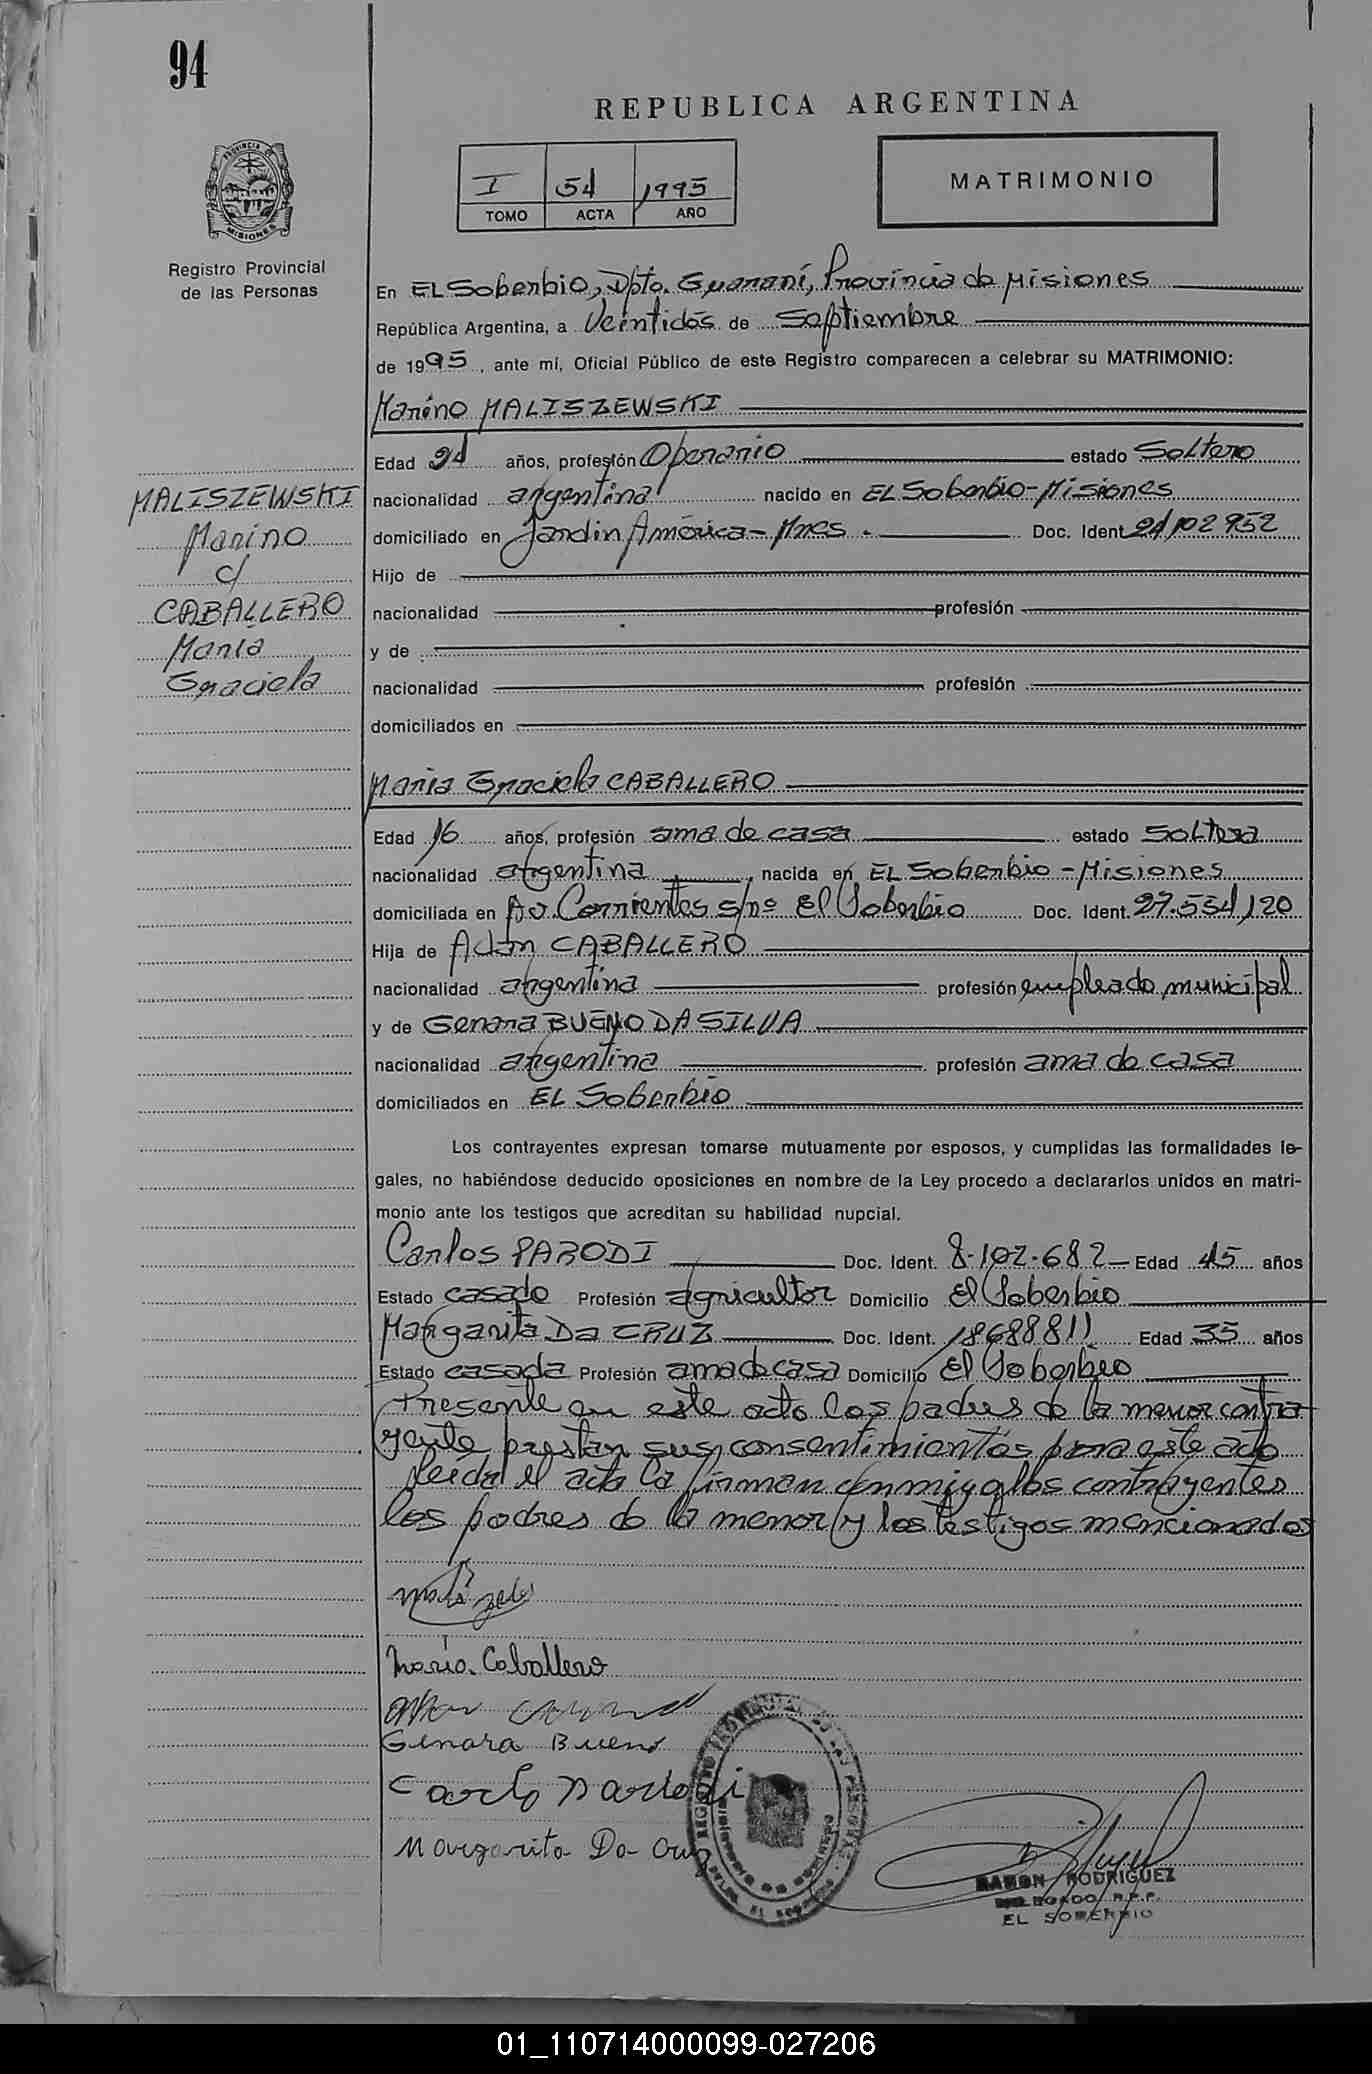 94
REPUBLICA ARGENTINA
PROVINCIA DE
MISIONES
I 54 1995
TOMO ACTA AÑO
MATRIMONIO
Registro Provincial
de las Personas
En EL Soberbio, Dpto. Guaraní, Provincia de Misiones
República Argentina, a Veintidós de Septiembre
de 1995, ante mí, Oficial Público de este Registro comparecen a celebrar su MATRIMONIO:
Marino MALISZEWSKI
Edad años, profesión Operario estado Soltero
MALISZEWSKI
Marino
c/
CABALLERO
María
Graciela
nacionalidad argentina nacido en EL Soberbio-Misiones
domiciliado en Jardín América-Mnes. Doc. Ident.
Hijo de
nacionalidad profesión
y de
nacionalidad profesión
domiciliados en
María Graciela CABALLERO
Edad 16 años, profesión ama de casa estado Soltera
nacionalidad argentina, nacida en EL Soberbio-Misiones
domiciliada en Av. Corrientes s/nº El Soberbio Doc. Ident. 27.554,120
Hija de Adán CABALLERO
nacionalidad argentina profesión empleado municipal
y de Genara BUENO DA SILVA
nacionalidad argentina profesión ama de casa
domiciliados en EL Soberbio
Los contrayentes expresan tomarse mutuamente por esposos, y cumplidas las formalidades le-
gales, no habiéndose deducido oposiciones en nombre de la Ley procedo a declararlos unidos en matri-
monio ante los testigos que acreditan su habilidad nupcial.
Carlos PARODI Doc. Ident. 8.102.682 Edad 45 años
Estado casado Profesión agricultor Domicilio El Soberbio
Margarita Da CRUZ Doc. Ident. 18688811 Edad 35 años
Estado casada Profesión ama de casa Domicilio El Soberbio
Presente en este acto los padres de la menor contra
yente prestan sus consentimientos para este acto
Leída el acta la firman conmigo los contrayentes
los padres de la menor y los testigos mencionados
María Caballero
Genara Bueno
Carlo Parlodi
Margarita Da Cruz
RAMON RODRIGUEZ
DELEGADO R.P.P.
EL SOBERBIO
01_110714000099-027206